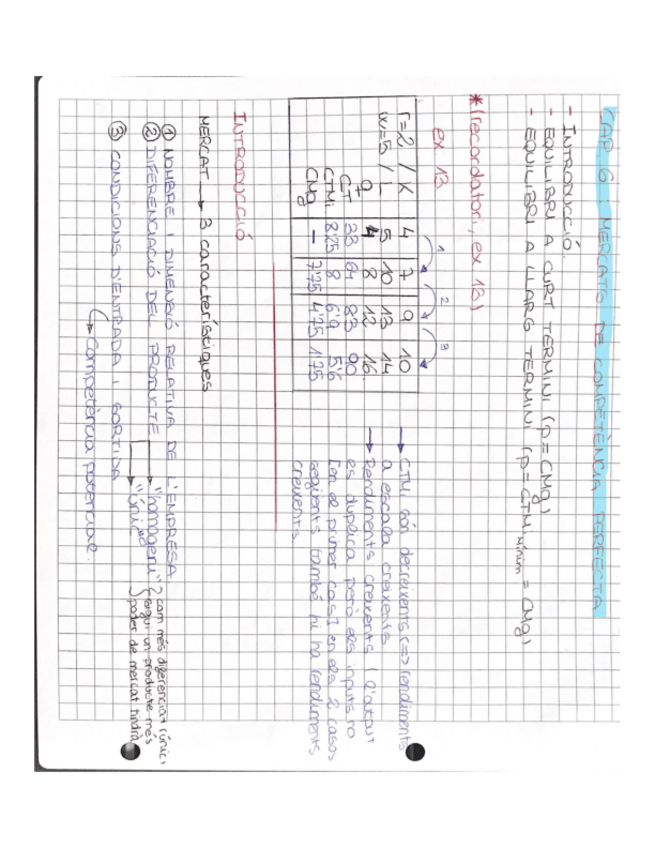 CAP. 6 : MERCATS DE COMPETÈNCIA PERFECTA
- INTRODUCCIÓ.
- EQUILIBRI A CURT TERMINI (p = CMg)
- EQUILIBRI A LLARG TERMINI (p = CTM mínim = CMg)
* (recordatori, ex 13)
ex. 13
1 2 3
r=2 / K 4 7 9 10
w=5 / L 5 10 13 14
q 4 8 12 16
CT 33 64 83 90
CTMi 8'25 8 6'9 5'6
CMg - 7'75 4'75 1'75
→ CTMi són decreixents (=> rendiments
a escala creixents
→ Rendiments creixents (l'output
es duplica però els inputs no
[en el primer cas] en els 2 casos
següents també hi ha rendiments
creixents.
INTRODUCCIÓ
MERCAT → 3 característiques
① NOMBRE I DIMENSIÓ RELATIVA DE L'EMPRESA
② DIFERENCIACIÓ DEL PRODUCTE → "homogeni"
→ "únic"
com més diferenciat (únic)
sigui un producte més
poder de mercat tindrà
③ CONDICIONS D'ENTRADA I SORTIDA
↳ Competència potencial.